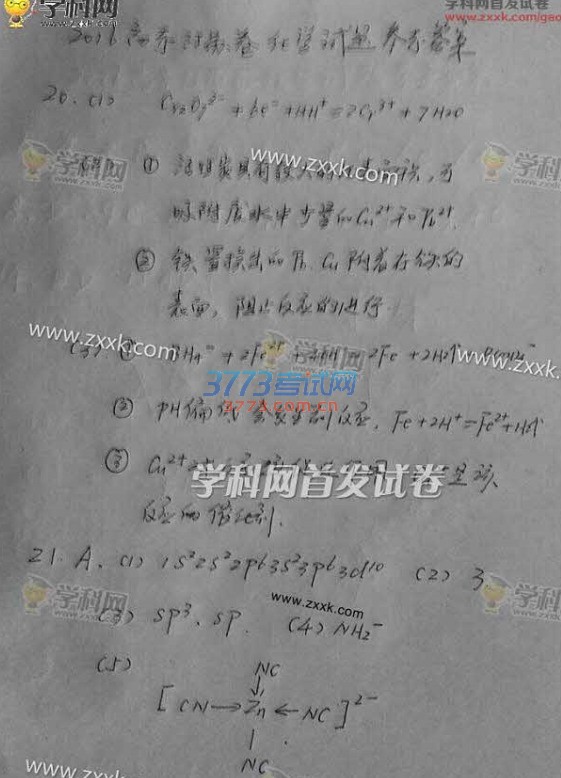 学科网
学科网首发试卷
www.zxxk.com/gao
2016高考江苏卷 化学试题 参考答案
20. (1) Cr2O7²⁻ + 6e⁻ + 14H⁺ = 2Cr³⁺ + 7H2O
学科网
www.zxxk.com
① 活性炭具有较大的表面积，可
吸附废水中少量的Cu²⁺和Pb²⁺
② 铁置换出的Pb、Cu附着在铁的
表面，阻止反应的进行.
www.zxxk.com
学科网
(3) ① + 2Fe²⁺ + = 2Fe + 2H2↑
www.zxxk.
3773考试网
www.3773.com.cn
② pH偏低 会发生副反应, Fe+2H⁺=Fe²⁺+H2↑
③ Cu²⁺ 是该
学科网首发试卷
反应的催化剂.
21. A. (1) 1s²2s²2p⁶3s²3p⁶3d¹⁰ (2) 3
学科网
www.zxxk.com
(3) sp³、sp. (4) NH2⁻
(5) NC
[CN→Zn←NC]²⁻
NC
www.zxxk.com